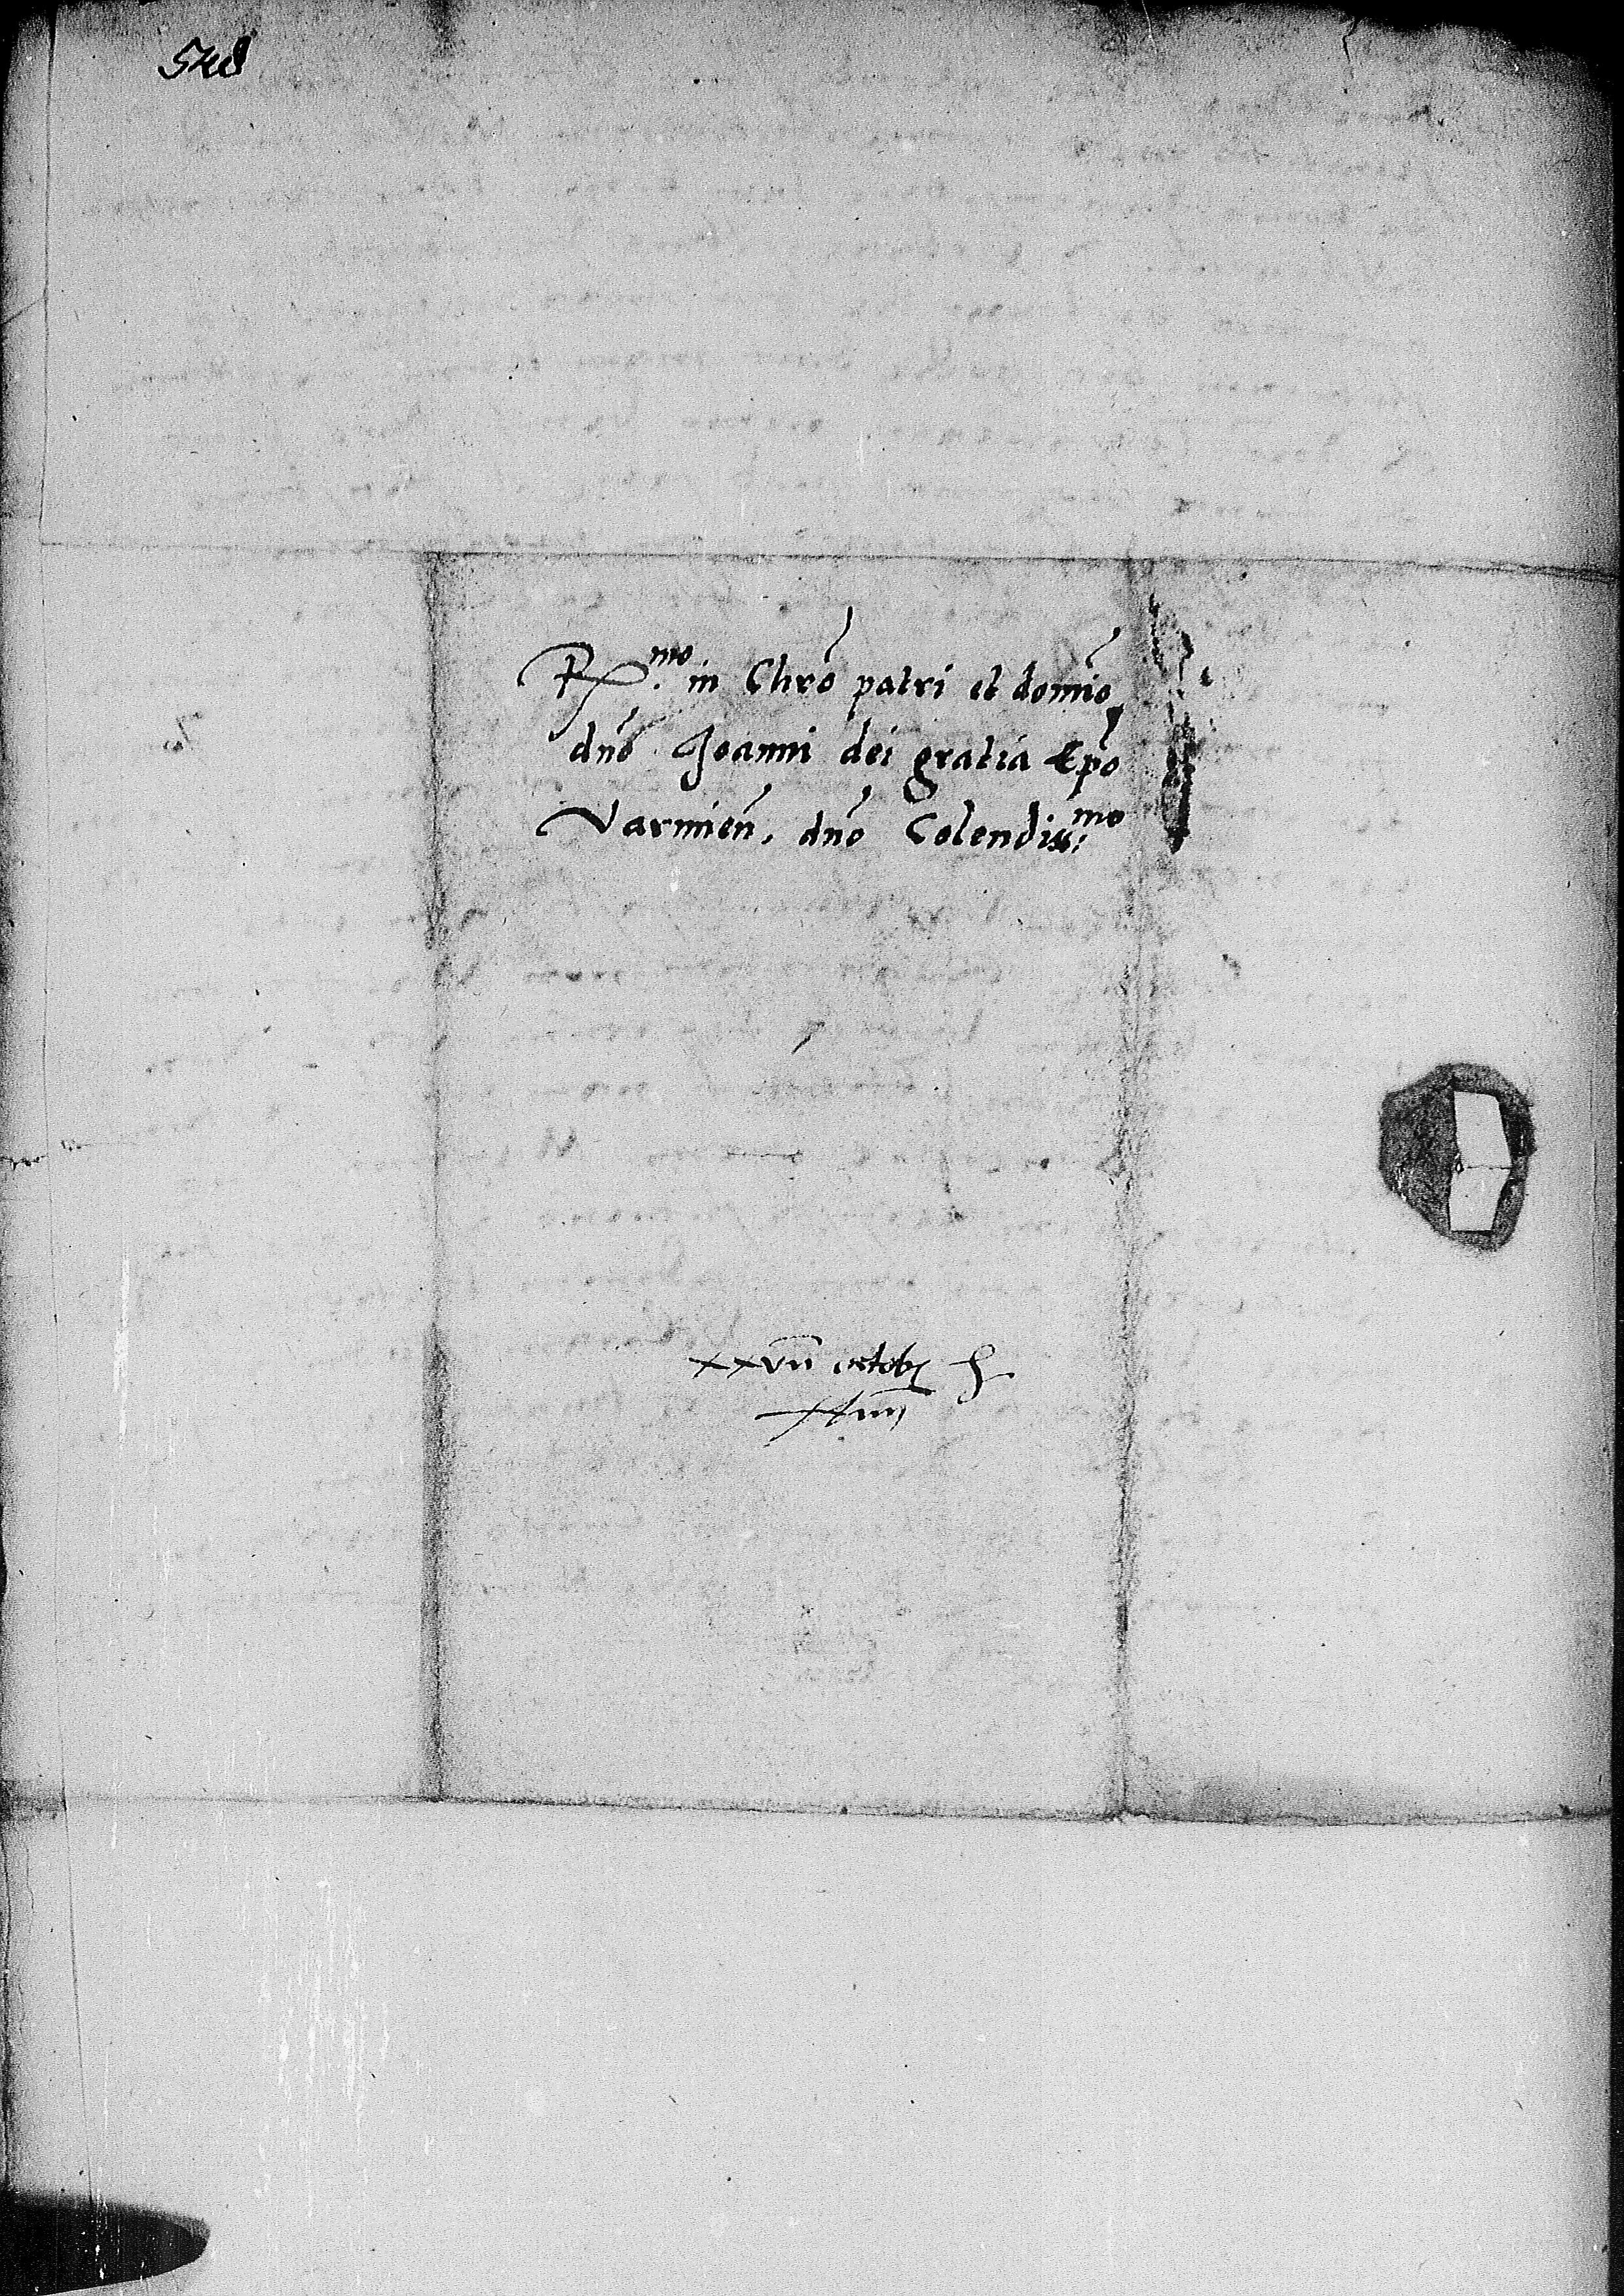 548
Rx.mo in Chro patri et domio,
dno Joanni dei gratia Epo
Varmien. dno Colendiss:mo
xxvii octobr